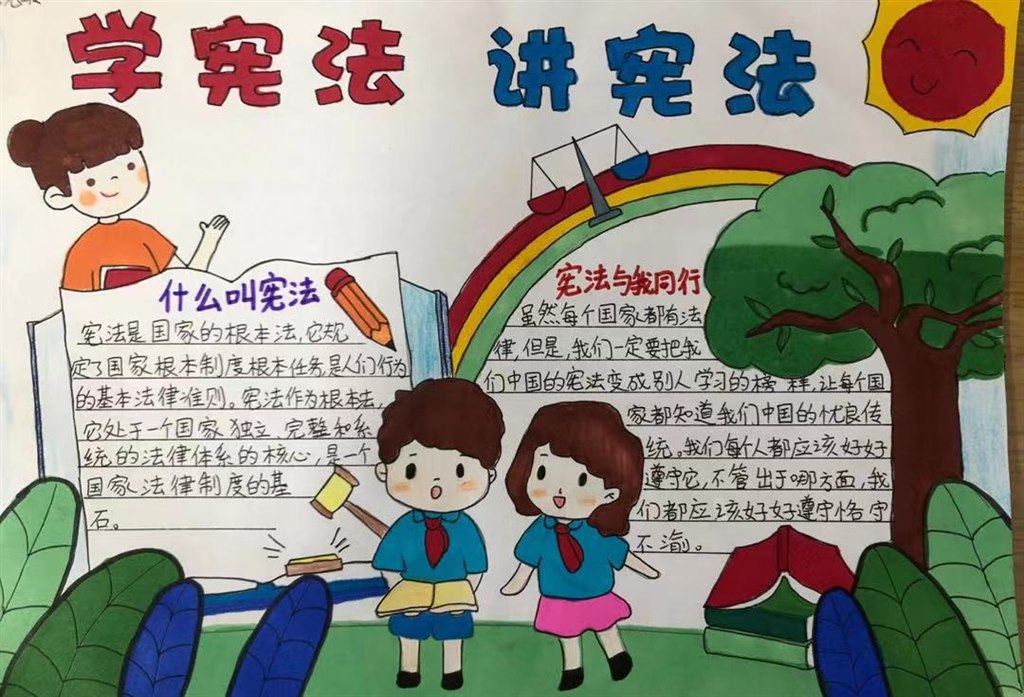 学宪法 讲宪法
什么叫宪法
宪法是国家的根本法,它规
定了国家根本制度根本任务是人们行为
的基本法律准则。宪法作为根本法,
它处于一个国家独立完整和系
统的法律体系的核心,是一个
国家法律制度的基
石。
宪法与我同行
虽然每个国家都有法
律,但是,我们一定要把我
们中国的宪法变成别人学习的榜样,让每个国
家都知道我们中国的优良传
统。我们每个人都应该好好
遵守它,不管出于哪方面,我
们都应该好好遵守恪守
不渝。